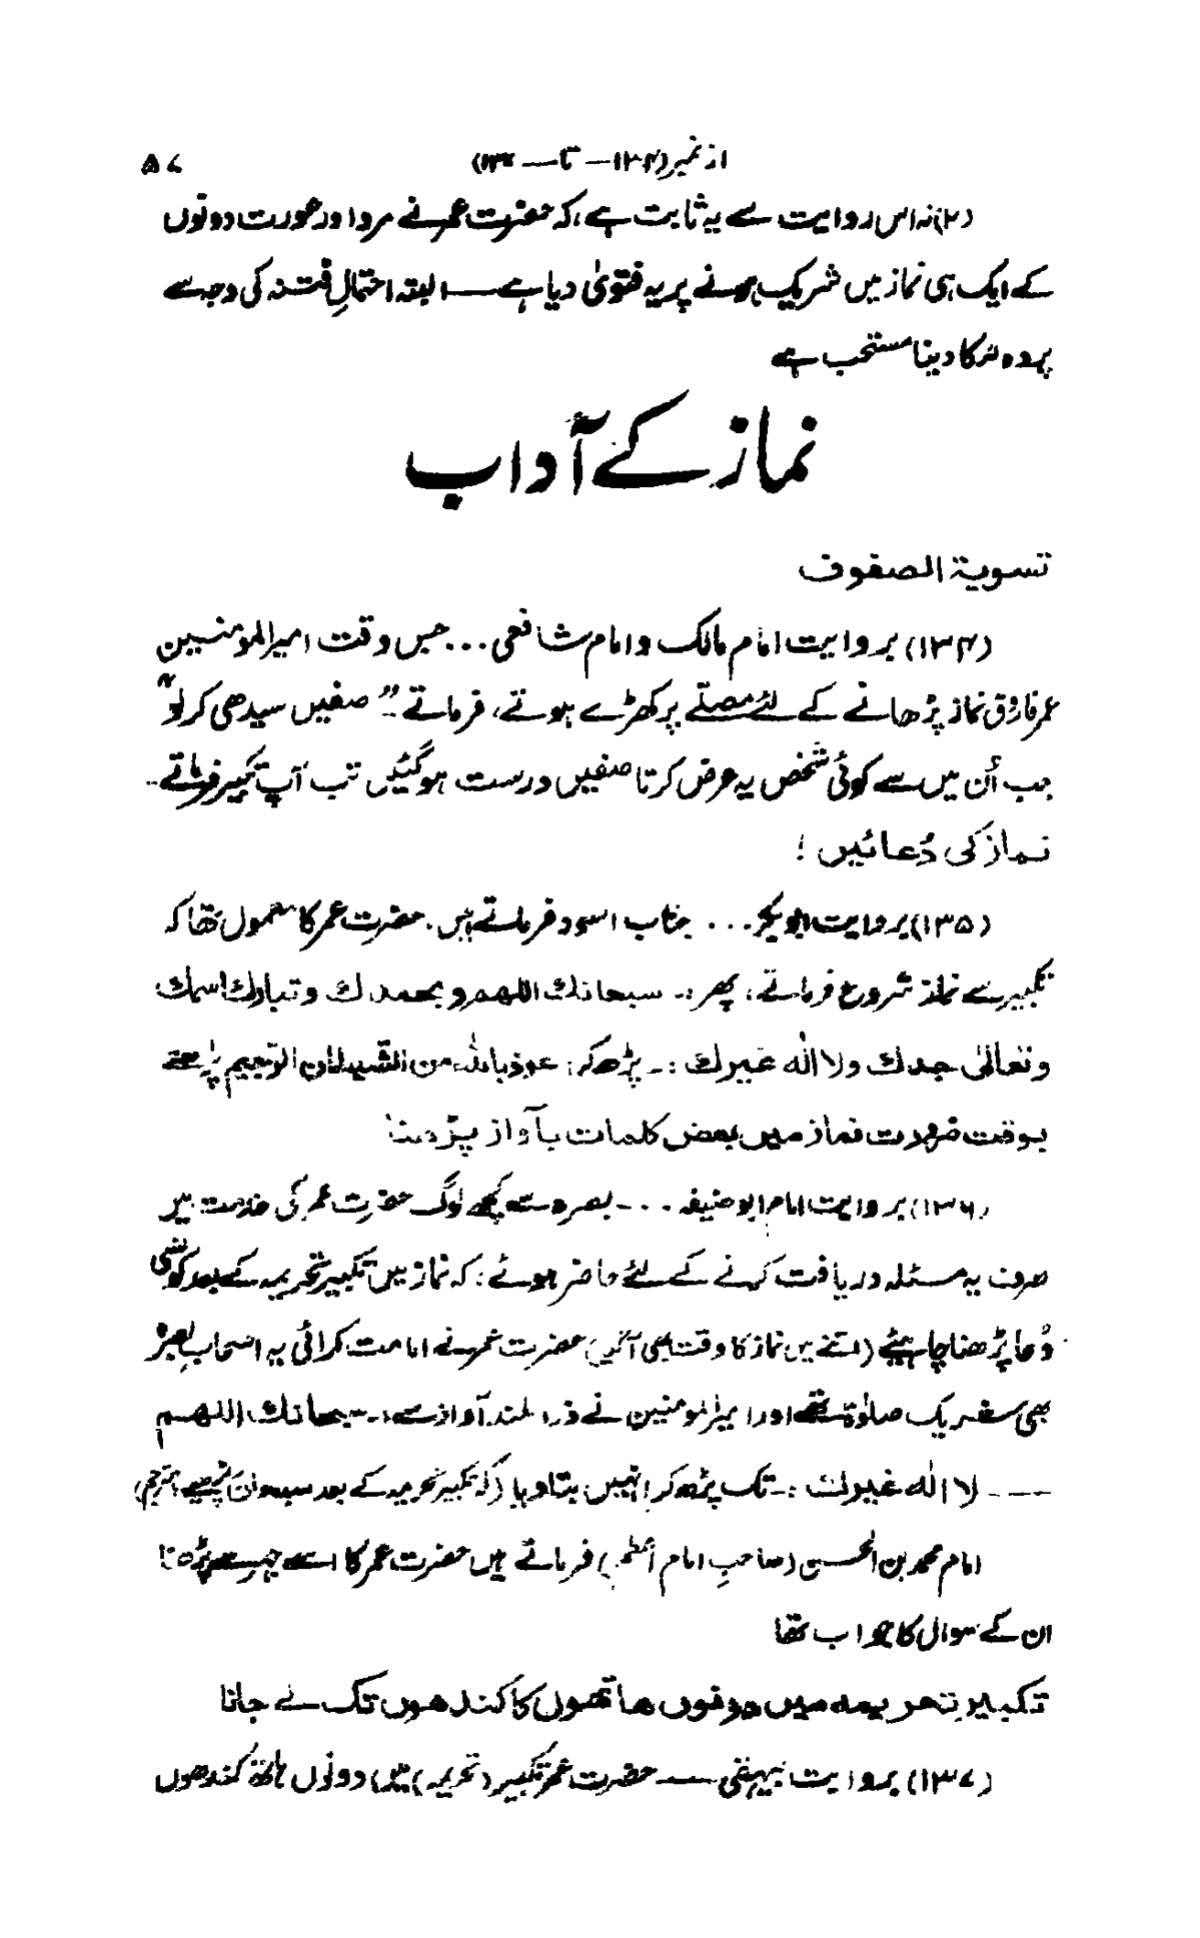 از نمبر (۱۳۴ — تا — ۱۳۷) ۵۷
(۲) نہ اس روایت سے یہ ثابت ہے، کہ حضرت عمر نے مرد اور عورت دونوں
کے ایک ہی نماز میں شریک ہونے پر یہ فتویٰ دیا ہے — البتہ احتمالِ فتنہ کی وجہ سے
پردہ سرکا دینا مستحب ہے
نماز کے آداب
تسویۃ الصفوف
(۱۳۴) بروایت امام مالک و امام شافعی ... جس وقت امیرالمومنین
عمر فاروق نماز پڑھانے کے لئے مصلّے پر کھڑے ہوتے، فرماتے :۔ "صفیں سیدھی کر لو"
جب اُن میں سے کوئی شخص یہ عرض کرتا صفیں درست ہوگئیں تب آپ تکبیر فرماتے ..
نماز کی دُعائیں !
(۱۳۵) بروایت ابوبکر ... جناب اسود فرماتے ہیں۔ حضرت عمر کا معمول تھا کہ
تکبیر سے نماز شروع فرماتے، پھر :۔ سبحانك اللهم و بحمدك و تبارك اسمك
و تعالىٰ جدك ولا الٰه غيرك :۔ پڑھ کر: عوذ بالله من الشّيطان الرّجيم پڑھتے
بوقت ضرورت نماز میں بعض کلمات بآواز پڑھنا:
(۱۳۶) بروایت امام ابو حنیفہ ... - بصرہ سے کچھ لوگ حضرت عمر کی خدمت میں
صرف یہ مسئلہ دریافت کرنے کے لئے حاضر ہوئے : کہ نماز میں تکبیر تحریمہ کے بعد کونسی
دُعا پڑھنا چاہیئے (اتنے میں نماز کا وقت بھی آگیا) حضرت عمر نے امامت کرائی یہ اصحابِ بصرہ
بھی شریک صلوٰۃ تھے اور امیرالمومنین نے ذرا بلند آواز سے :۔ سبحانك اللهم
---- لا الٰه غيرك :۔ تک پڑھ کر انہیں بتا دیا (کہ تکبیر تحریمہ کے بعد سبحانك پڑھیے، مترجم)
امام محمد بن الحسن (صاحبِ امام اعظم) فرماتے ہیں حضرت عمر کا اسے جہر سے پڑھنا
ان کے سوال کا جواب تھا
تکبیر تحریمہ میں دونوں ہاتھوں کا کندھوں تک لے جانا
(۱۳۷) بروایت بیہقی — حضرت عمر تکبیر (تحریمہ) میں دونوں ہاتھ کندھوں